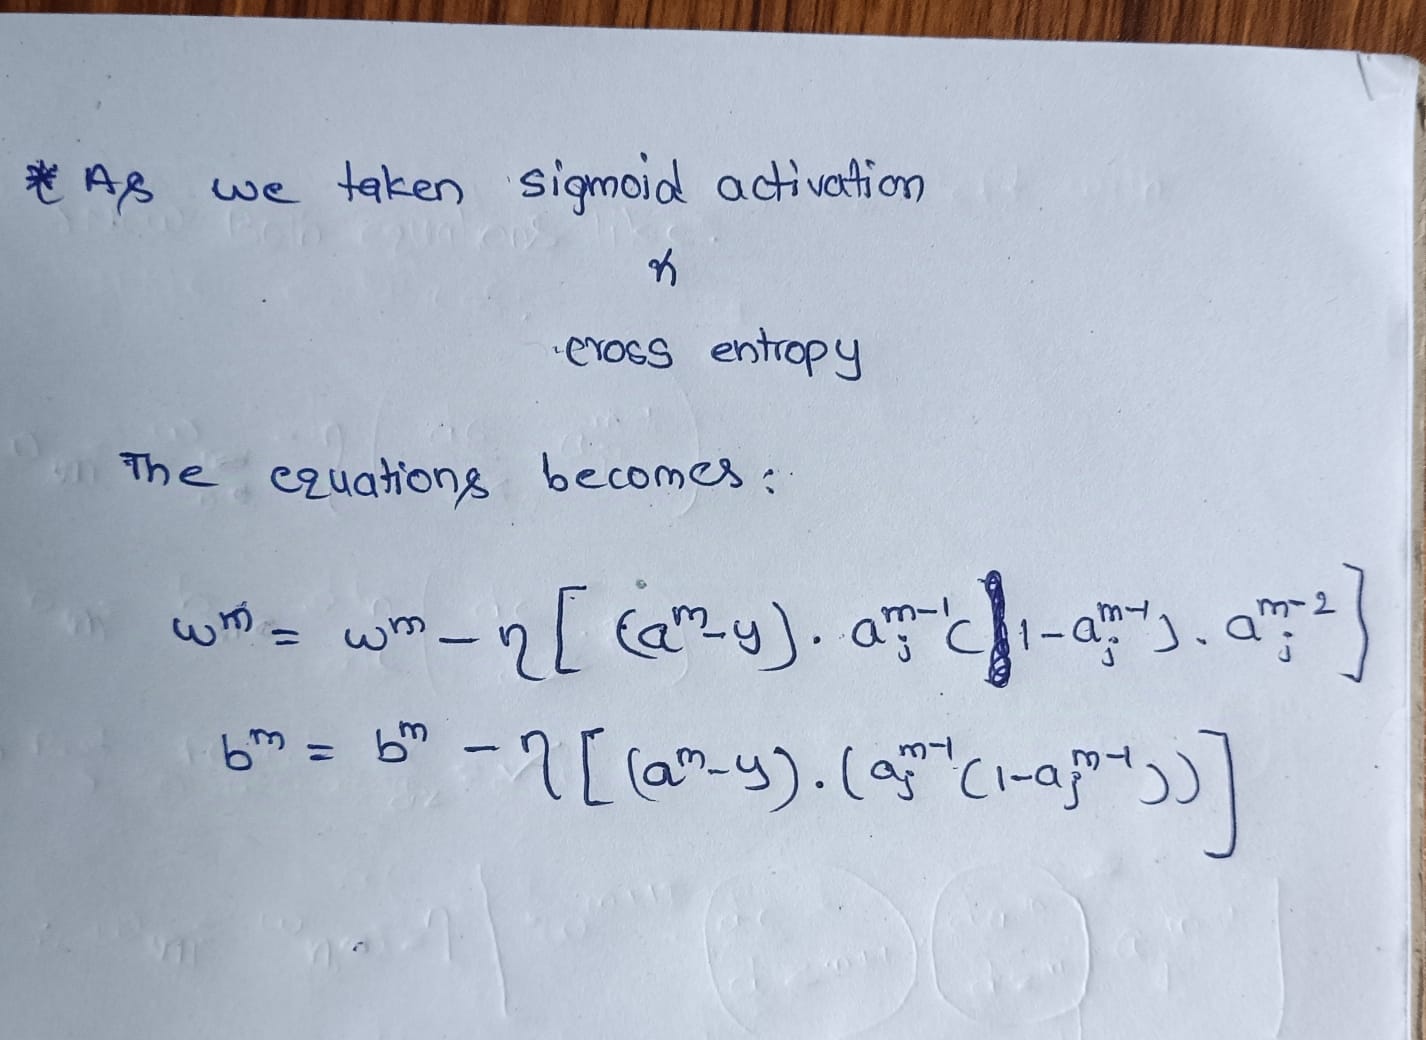 * As we taken sigmoid activation
&
cross entropy
The equations becomes:
wᵐ = wᵐ − η [ (aᵐ−y). aⱼᵐ⁻¹(1−aⱼᵐ⁻¹). aⱼᵐ⁻² ]
bᵐ = bᵐ − η [ (aᵐ−y).(aⱼᵐ⁻¹(1−aⱼᵐ⁻¹)) ]